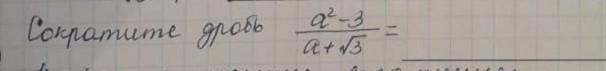 Сократите дробь (a² - 3)/(a + √3) =